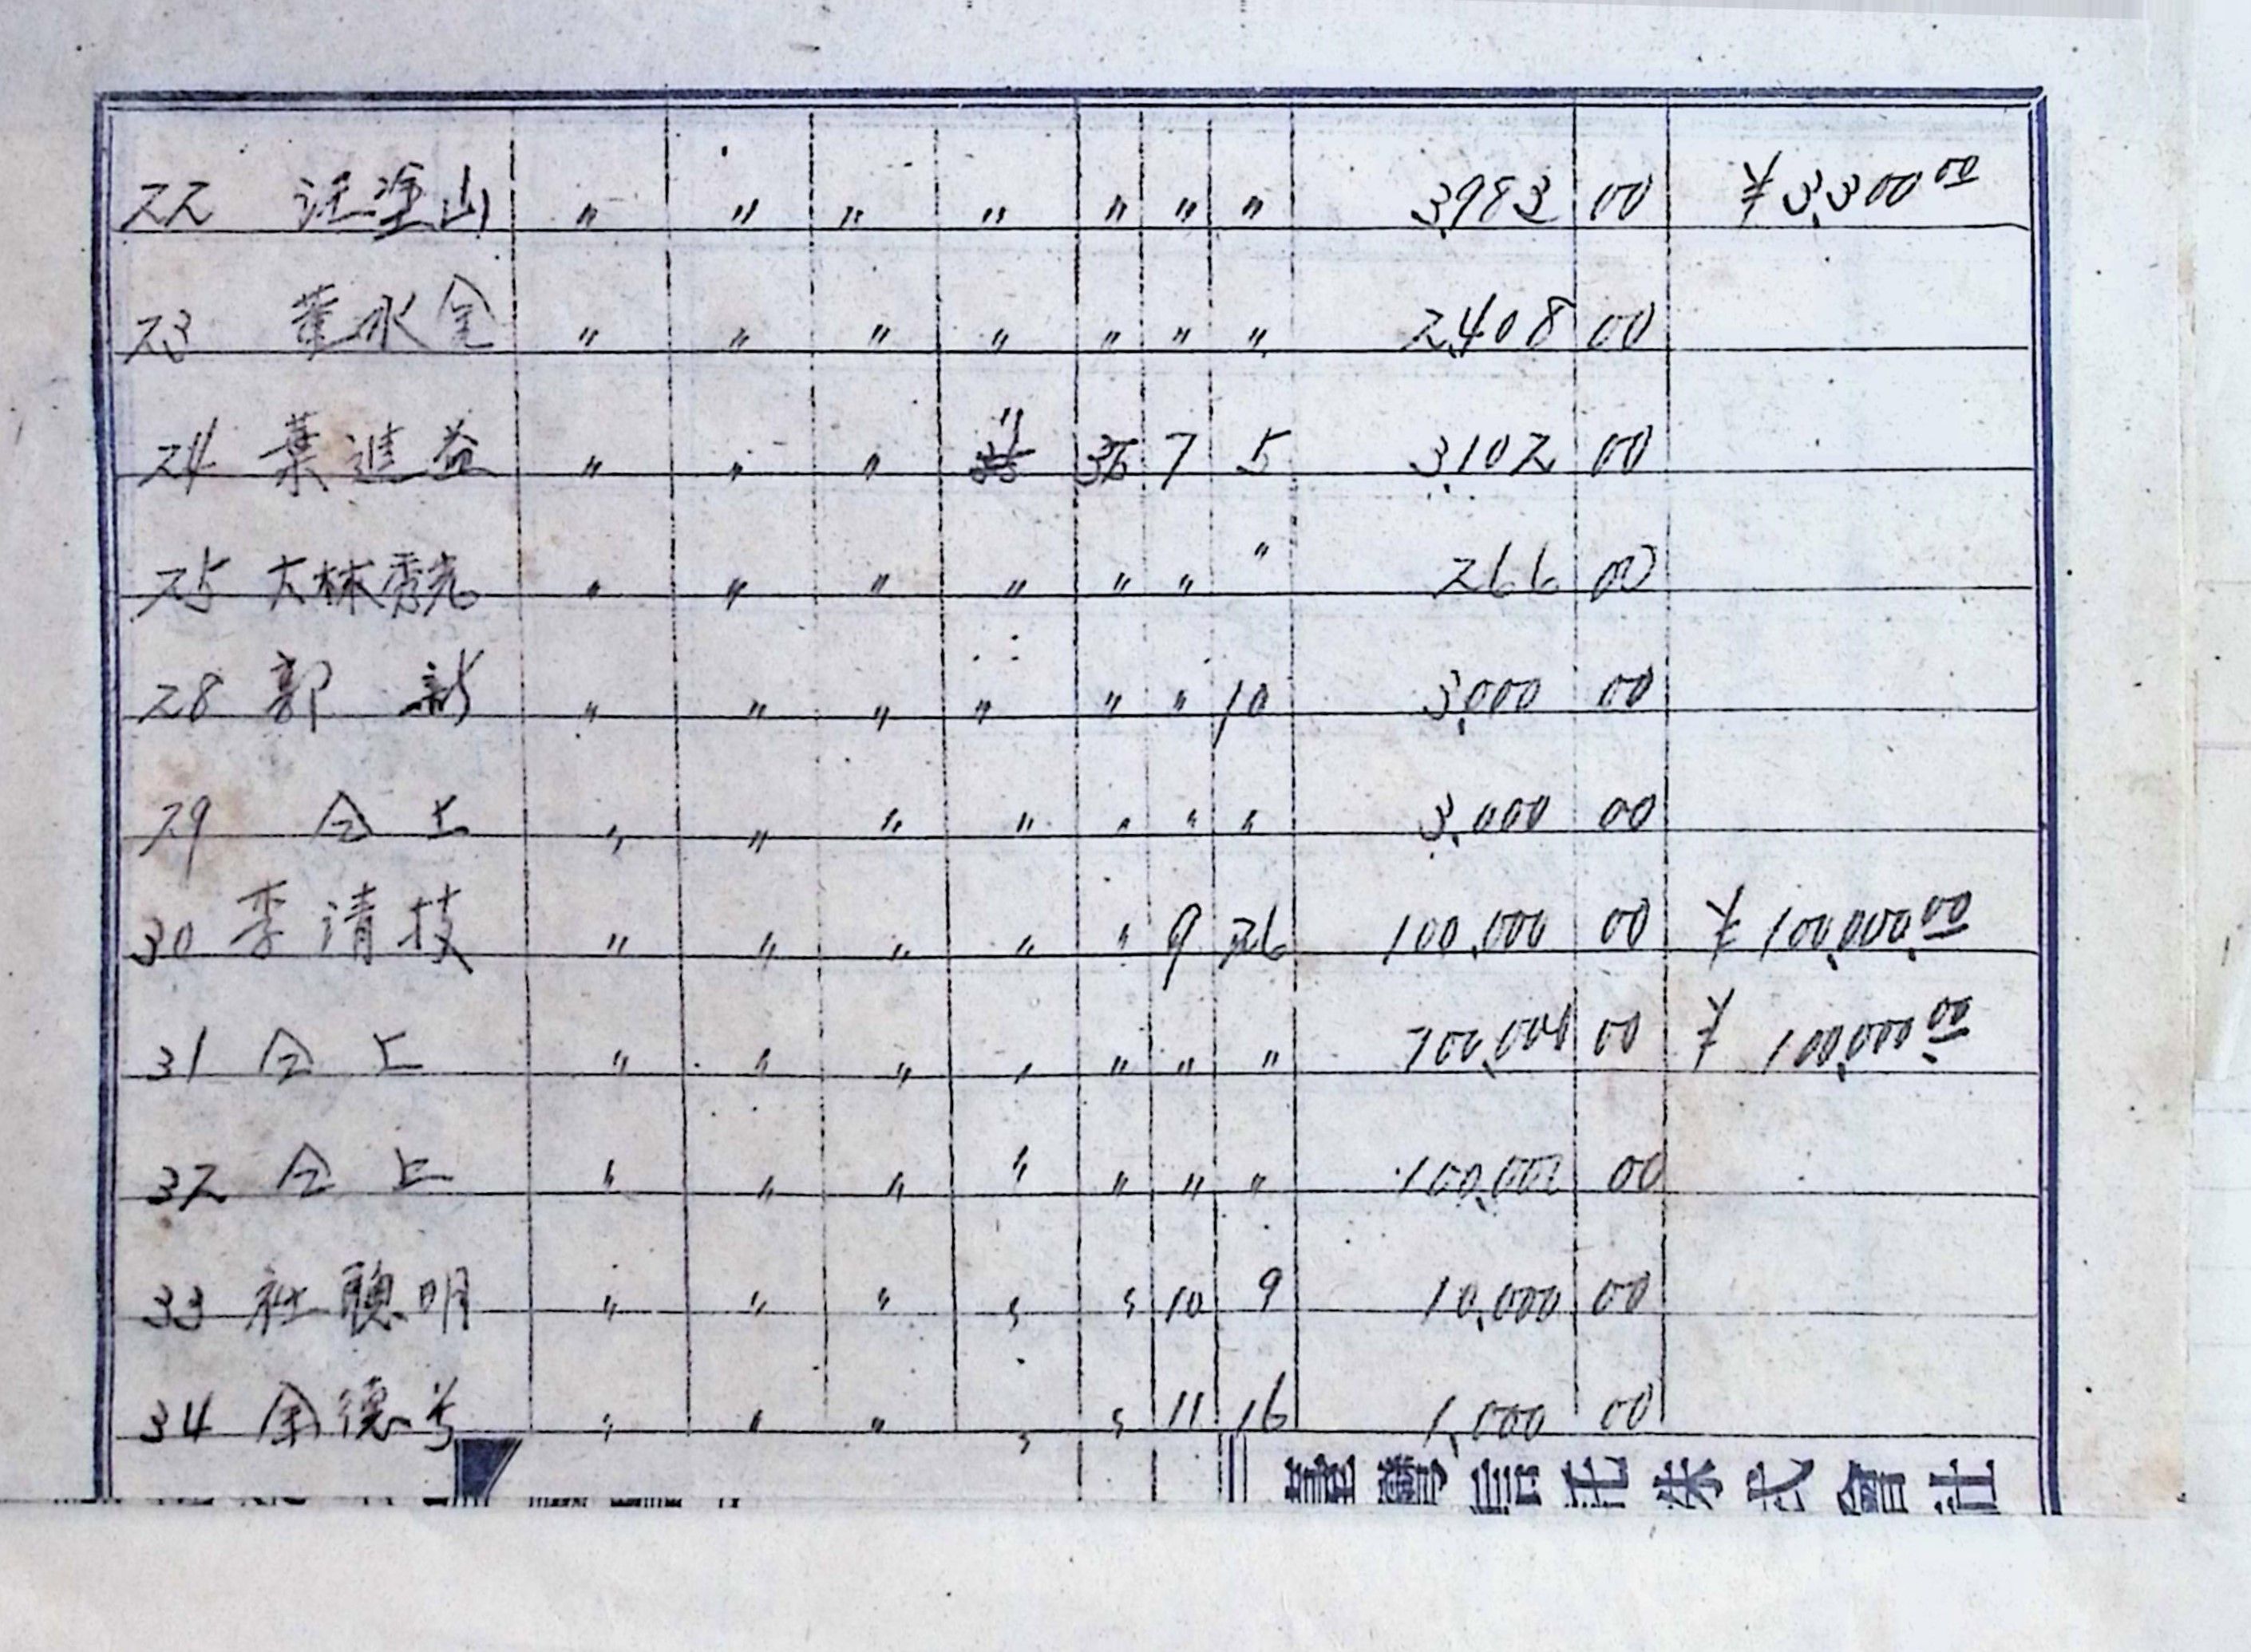 22 汪塗山 〃 〃 〃 〃 〃 〃 〃 3,983 00 ¥3,300 00
23 葉水金 〃 〃 〃 〃 〃 〃 〃 2,408 00
24 葉進益 〃 〃 〃 〃 36 7 5 3,102 00
25 大林秀光 〃 〃 〃 〃 〃 〃 〃 266 00
28 郭 新 〃 〃 〃 〃 〃 〃 10 3,000 00
29 仝上 〃 〃 〃 〃 〃 〃 〃 3,000 00
30 李清枝 〃 〃 〃 〃 〃 9 26 100,000 00 ¥100,000.00
31 仝上 〃 〃 〃 〃 〃 〃 〃 00 ¥100,000.00
32 仝上 〃 〃 〃 〃 〃 〃 〃 100,000 00
33 聰明 〃 〃 〃 〃 〃 10 9 10,000 00
34 德 〃 〃 〃 〃 〃 11 16 1,000 00
臺灣信託株式會社